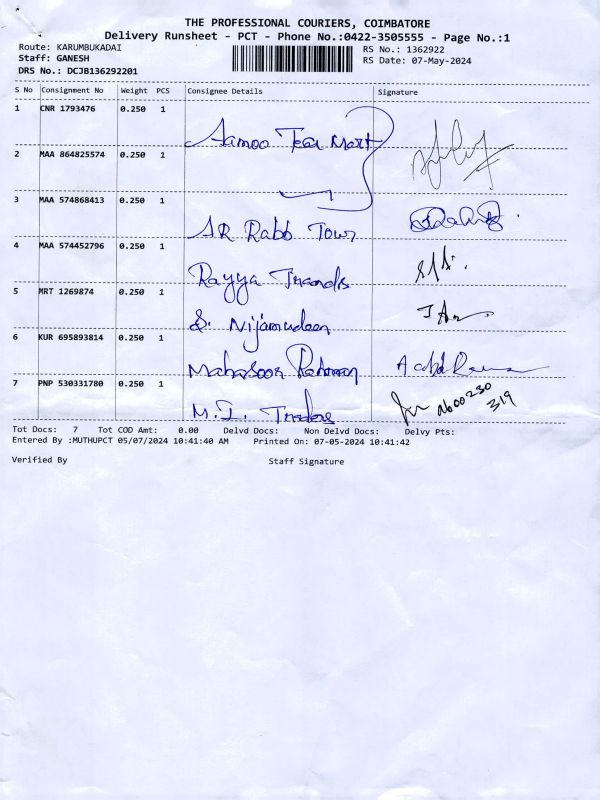 THE PROFESSIONAL COURIERS, COIMBATORE
Delivery Runsheet - PCT - Phone No.:0422-3505555 - Page No.:1
Route: KARUMBUKADAI
Staff: GANESH
DRS No.: DCJB136292201
RS No.: 1362922
RS Date: 07-May-2024
S No Consignment No Weight PCS Consignee Details Signature
1 CNR 1793476 0.250 1 Aamoo Tea Mart
2 MAA 864825574 0.250 1
3 MAA 574868413 0.250 1 AR Rabb Tour
4 MAA 574452796 0.250 1 Rayya Trends
5 MRT 1269874 0.250 1 S. Nijamudeen
6 KUR 695893814 0.250 1 Rahman
7 PNP 530331780 0.250 1 M.I. Traders 9600230
319
Tot Docs: 7 Tot COD Amt: 0.00 Delvd Docs: Non Delvd Docs: Delvy Pts:
Entered By :MUTHUPCT 05/07/2024 10:41:40 AM Printed On: 07-05-2024 10:41:42
Verified By Staff Signature